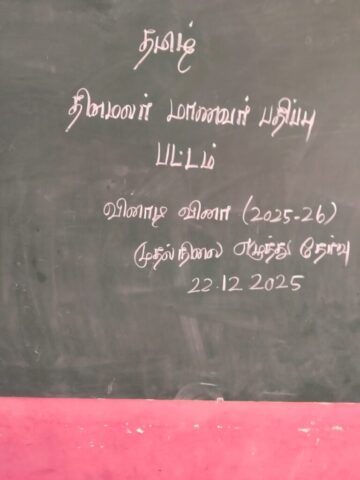 தமிழ்
தினமலர் மாணவர் பதிப்பு
பட்டம்
வினாடி வினா (2025-26)
முதல்நிலை எழுத்து தேர்வு
22.12 2025